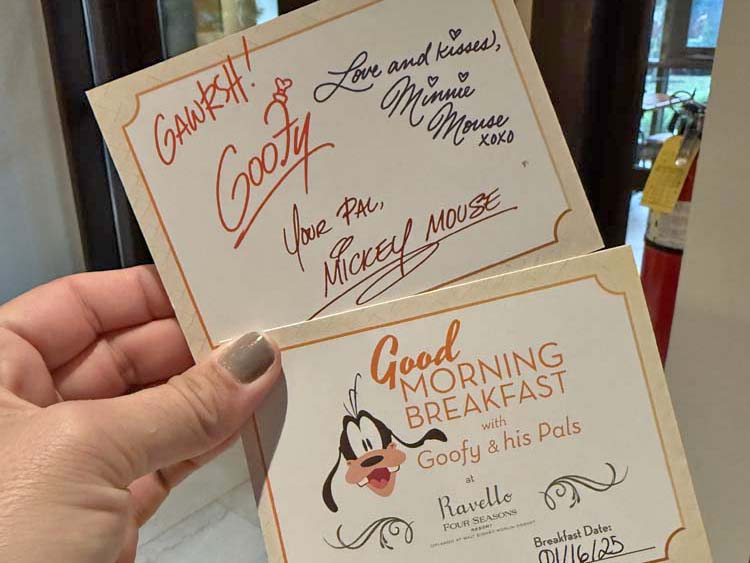 GAWRSH!
Goofy
Love and kisses,
Minnie
Mouse
xoxo
Your Pal,
Mickey Mouse
Good
MORNING
BREAKFAST
with
Goofy & his Pals
at
Ravello
FOUR SEASONS
RESORT
ORLANDO AT WALT DISNEY WORLD RESORT
Breakfast Date:
01/16/25